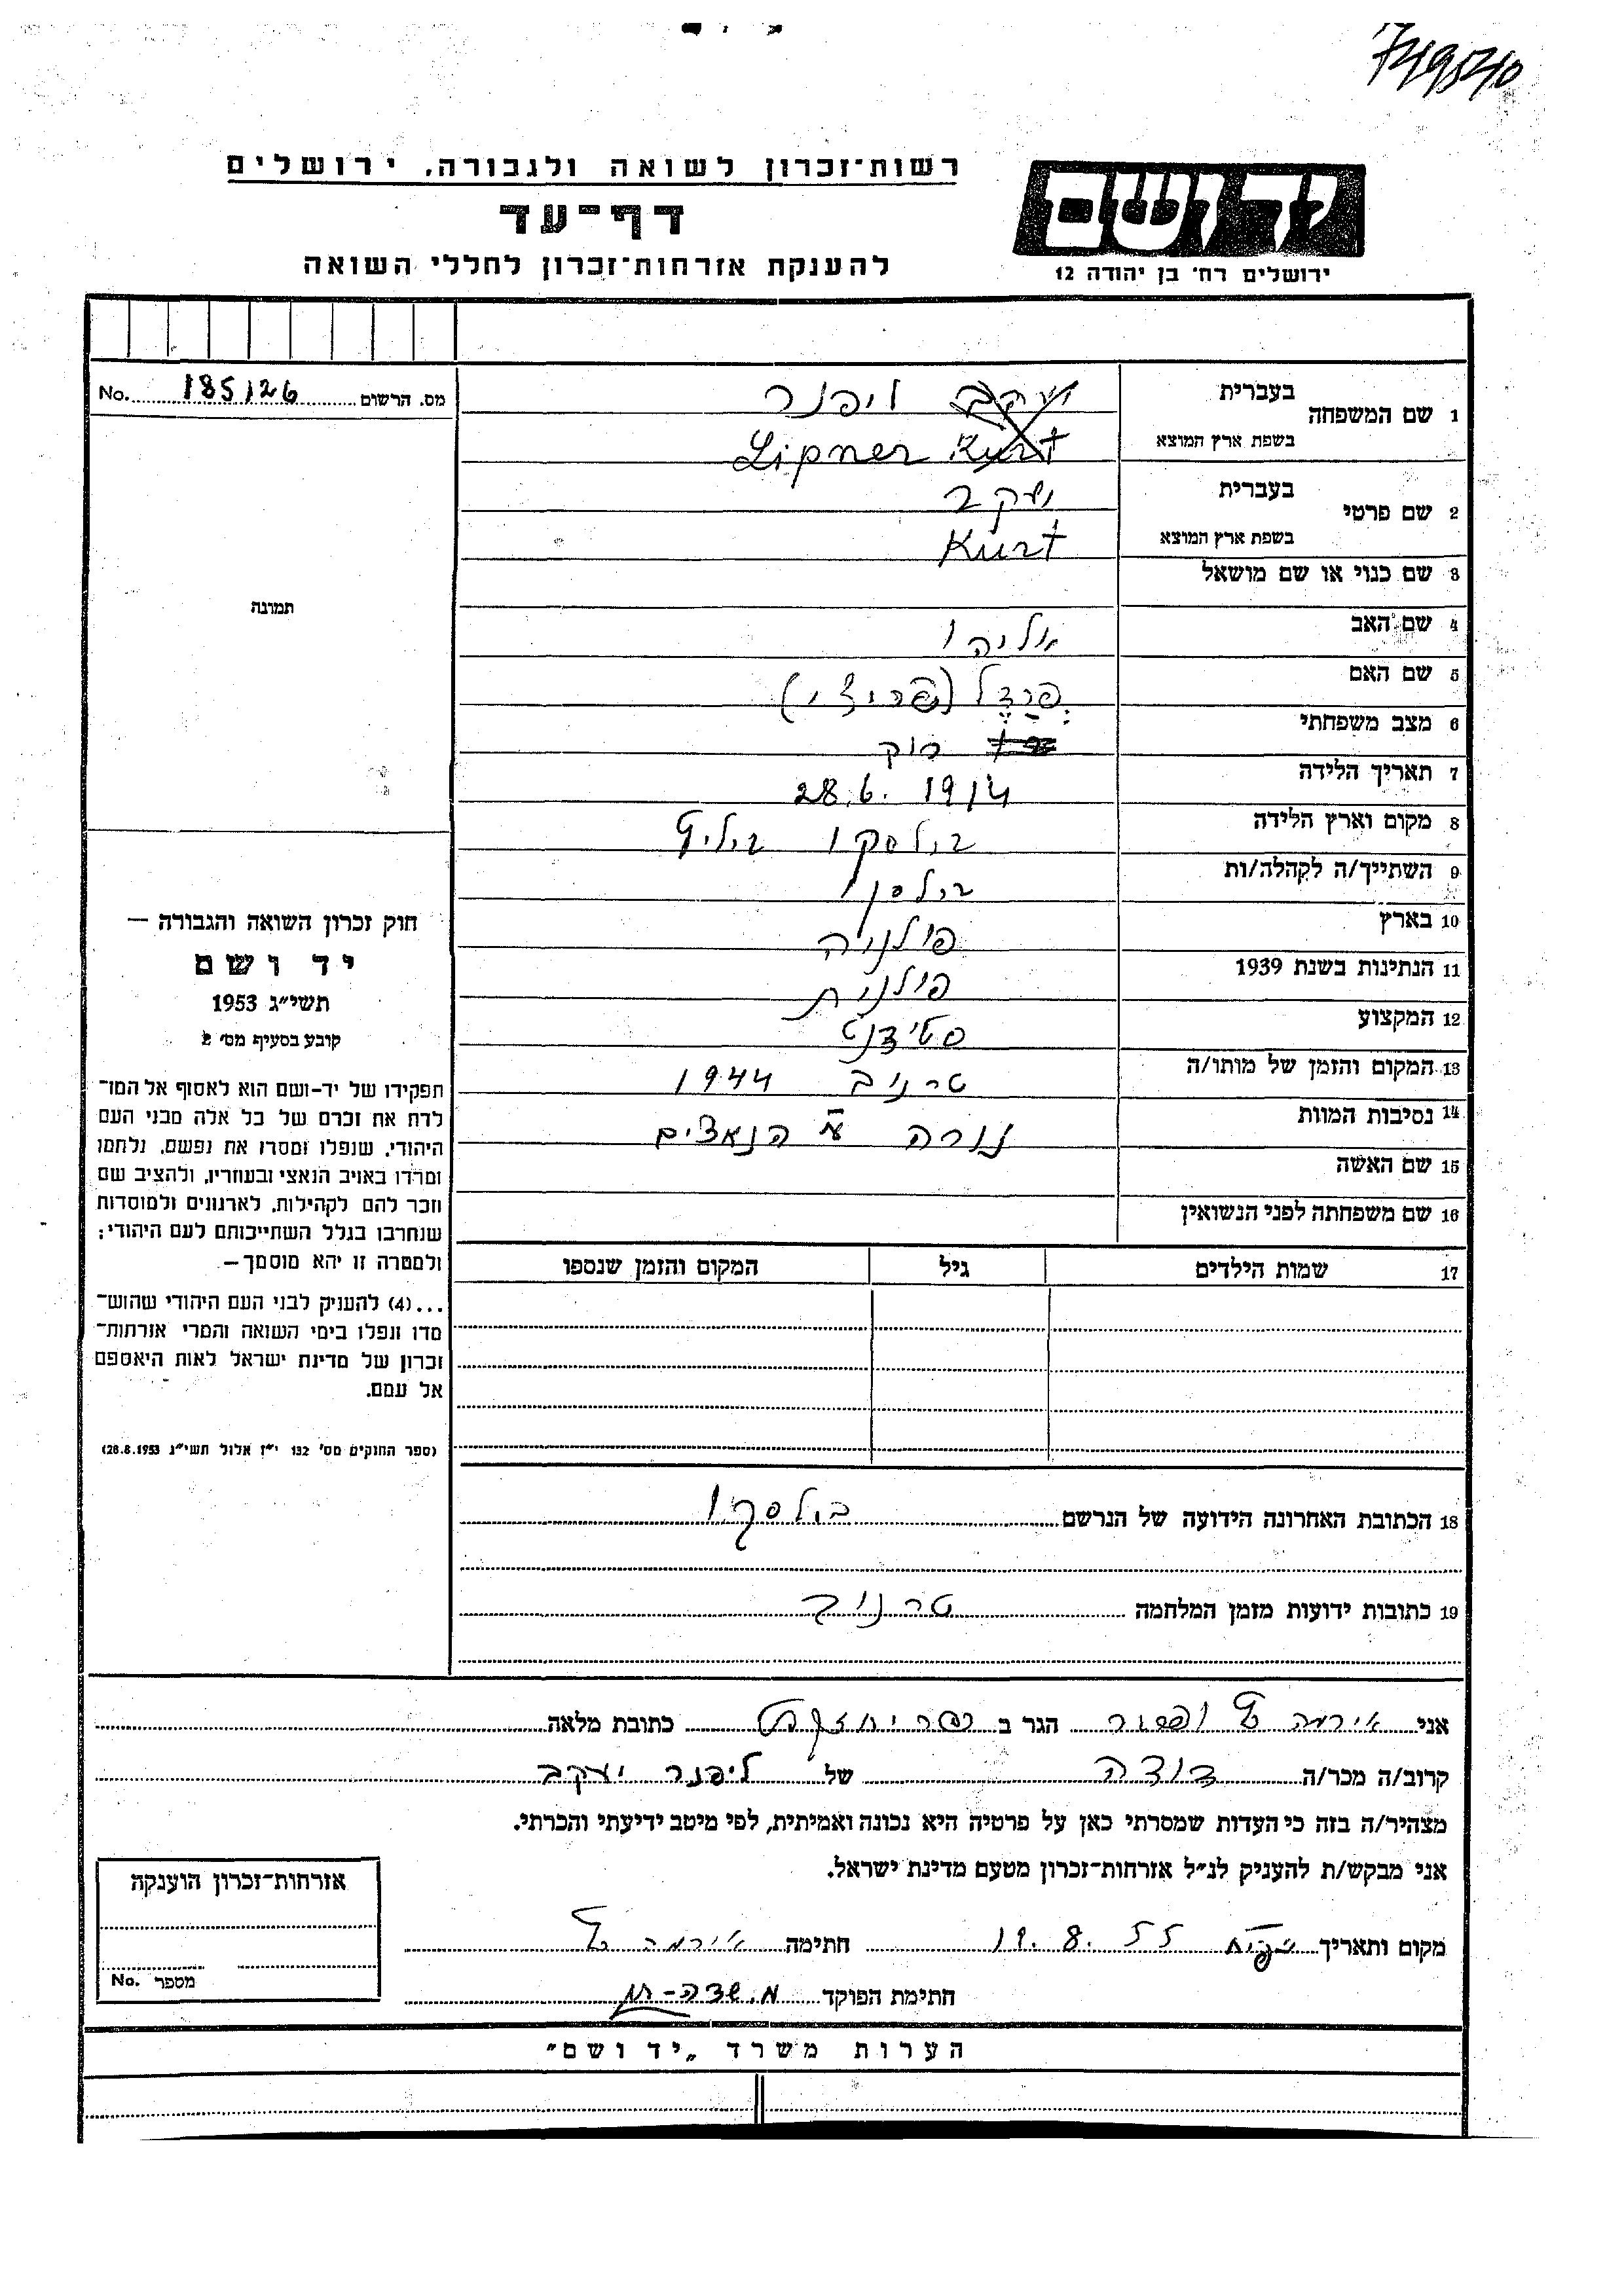 רשות־זכרון לשואה ולגבורה, ירושלים
דף־עד
להענקת אזרחות־זכרון לחללי השואה
יד ושם
ירושלים רח' בן יהודה 12
מס. הרשום 185126 No.
1 שם המשפחה בעברית יעקב ליפנר
בשפת ארץ המוצא Lipner Kurt
2 שם פרטי בעברית יעקב
בשפת ארץ המוצא Kurt
3 שם כנוי או שם מושאל
4 שם האב אליהו
5 שם האם
6 מצב משפחתי רוק
7 תאריך הלידה 28.6.1914
8 מקום וארץ הלידה
9 השתייך/ה לקהלה/ות
10 בארץ פולניה
11 הנתינות בשנת 1939 פולנית
12 המקצוע סטודנט
13 המקום והזמן של מותו/ה טרנוב 1944
14 נסיבות המוות נורה ע"י הנאצים
15 שם האשה
16 שם משפחתה לפני הנשואין
17 שמות הילדים גיל המקום והזמן שנספו
תמונה
חוק זכרון השואה והגבורה —
יד ושם
תשי״ג 1953
קובע בסעיף מס' 2
תפקידו של יד-ושם הוא לאסוף אל המו־
לדת את זכרם של כל אלה מבני העם
היהודי, שנפלו ומסרו את נפשם, נלחמו
ומרדו באויב הנאצי ובעוזריו, ולהציב שם
וזכר להם לקהילות, לארגונים ולמוסדות
שנחרבו בגלל השתייכותם לעם היהודי;
ולמטרה זו יהא מוסמך —
...(4) להעניק לבני העם היהודי שהוש־
מדו ונפלו בימי השואה והמרי אזרחות־
זכרון של מדינת ישראל לאות היאספם
אל עמם.
(ספר החוקים מס' 132 י״ז אלול תשי״ג 28.8.1953)
18 הכתובת האחרונה הידועה של הנרשם
19 כתובות ידועות מזמן המלחמה טרנוב
אני אירמה הגר ב כתובת מלאה
קרוב/ה מכר/ה דודה של ליפנר יעקב
מצהיר/ה בזה כי העדות שמסרתי כאן על פרטיה היא נכונה ואמיתית, לפי מיטב ידיעתי והכרתי.
אני מבקש/ת להעניק לנ״ל אזרחות־זכרון מטעם מדינת ישראל.
מקום ותאריך 19.8.55 חתימה אירמה
חתימת הפוקד מ. שדה-חן
אזרחות־זכרון הוענקה
מספר No.
הערות משרד „יד ושם״